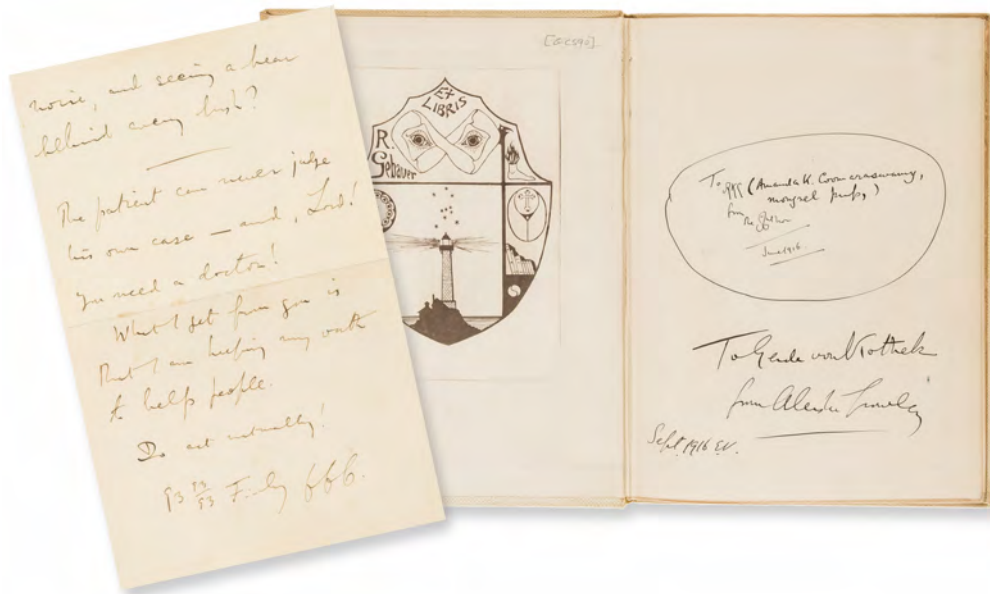 noise, and seeing a bear
behind every bush?
The patient can never judge
his own case — and, Lord!
you need a doctor!
What I get from you is
that I am keeping my oath
to help people.
Do act naturally!
93 93/93 F
666.
[@C590]
EX
LIBRIS
R.
Gebauer
To (Ananda K. Coomaraswamy,
mongrel pup,)
from
The Author
June 1916.
To Gerda von Kothek
from Aleister Crowley
Sept. 1916 E.V.